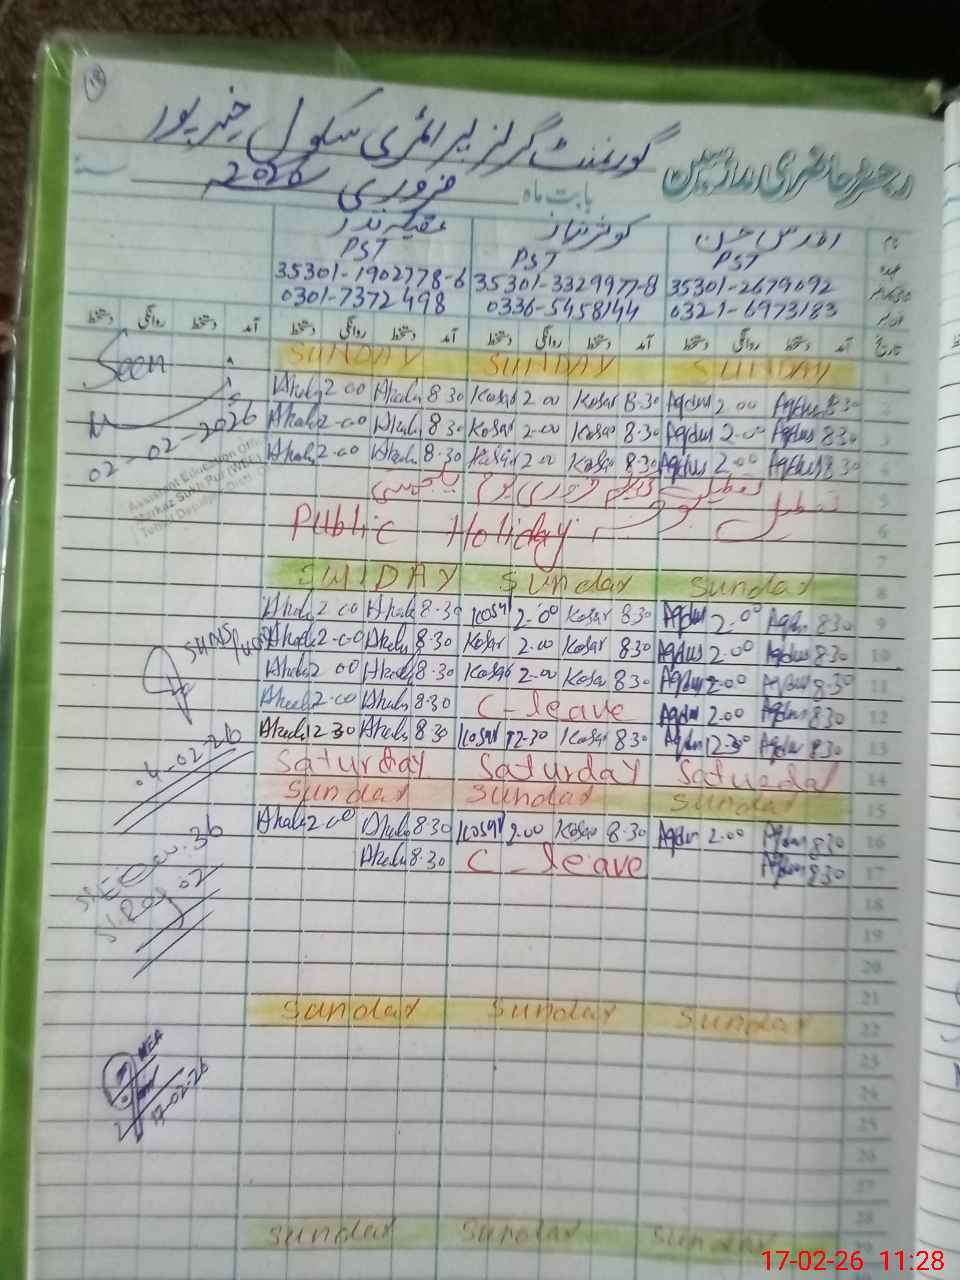 گورنمنٹ گرلز پرائمری سکول خضر پور
رجسٹر حاضری ملازمین
بابت ماہ فروری 2026 سنہ
اقدس حسن کوثر نیاز عقیلہ نذر
PST PST PST
35301-1902778-6 35301-3329977-8 35301-2679092
0301-7372498 0336-5458144 0321-6973183
تاریخ آمد دستخط روانگی دستخط آمد دستخط روانگی دستخط آمد دستخط روانگی دستخط آمد دستخط روانگی دستخط
Seen SUNDAY SUNDAY SUNDAY 1
Akeela 2.00 Akeela 8.30 Kosar 2.00 Kosar 8.30 Aqdus 2.00 Aqdus 8.30 2
02-02-2026 Akeela 2.00 Akeela 8.30 Kosar 2.00 Kosar 8.30 Aqdus 2.00 Aqdus 8.30 3
Akeela 2.00 Akeela 8.30 Kosar 2.00 Kosar 8.30 Aqdus 2.00 Aqdus 8.30 4
Assistant Education Officer
Markaz
تعطیل 5
Public Holiday 6
7
SUNDAY Sunday Sunday 8
Akeela 2.00 Akeela 8.30 Kosar 2.00 Kosar 8.30 Aqdus 2.00 Aqdus 8.30 9
Akeela 2.00 Akeela 8.30 Kosar 2.00 Kosar 8.30 Aqdus 2.00 Aqdus 8.30 10
Akeela 2.00 Akeela 8.30 Kosar 2.00 Kosar 8.30 Aqdus 2.00 Aqdus 8.30 11
Akeela 2.00 Akeela 8.30 C-leave Aqdus 2.00 Aqdus 8.30 12
04-02-26 Akeela 12.30 Akeela 8.30 Kosar 12.30 Kosar 8.30 Aqdus 12.30 Aqdus 8.30 13
Saturday Saturday Saturday 14
Sunday Sunday Sunday 15
Akeela 2.00 Akeela 8.30 Kosar 2.00 Kosar 8.30 Aqdus 2.00 Aqdus 8.30 16
Akeela 8.30 C-leave Aqdus 8.30 17
18
19
20
21
Sunday Sunday Sunday 22
MEA 23
17-02-26 24
25
26
27
28
Sunday Sunday Sunday
17-02-26 11:28